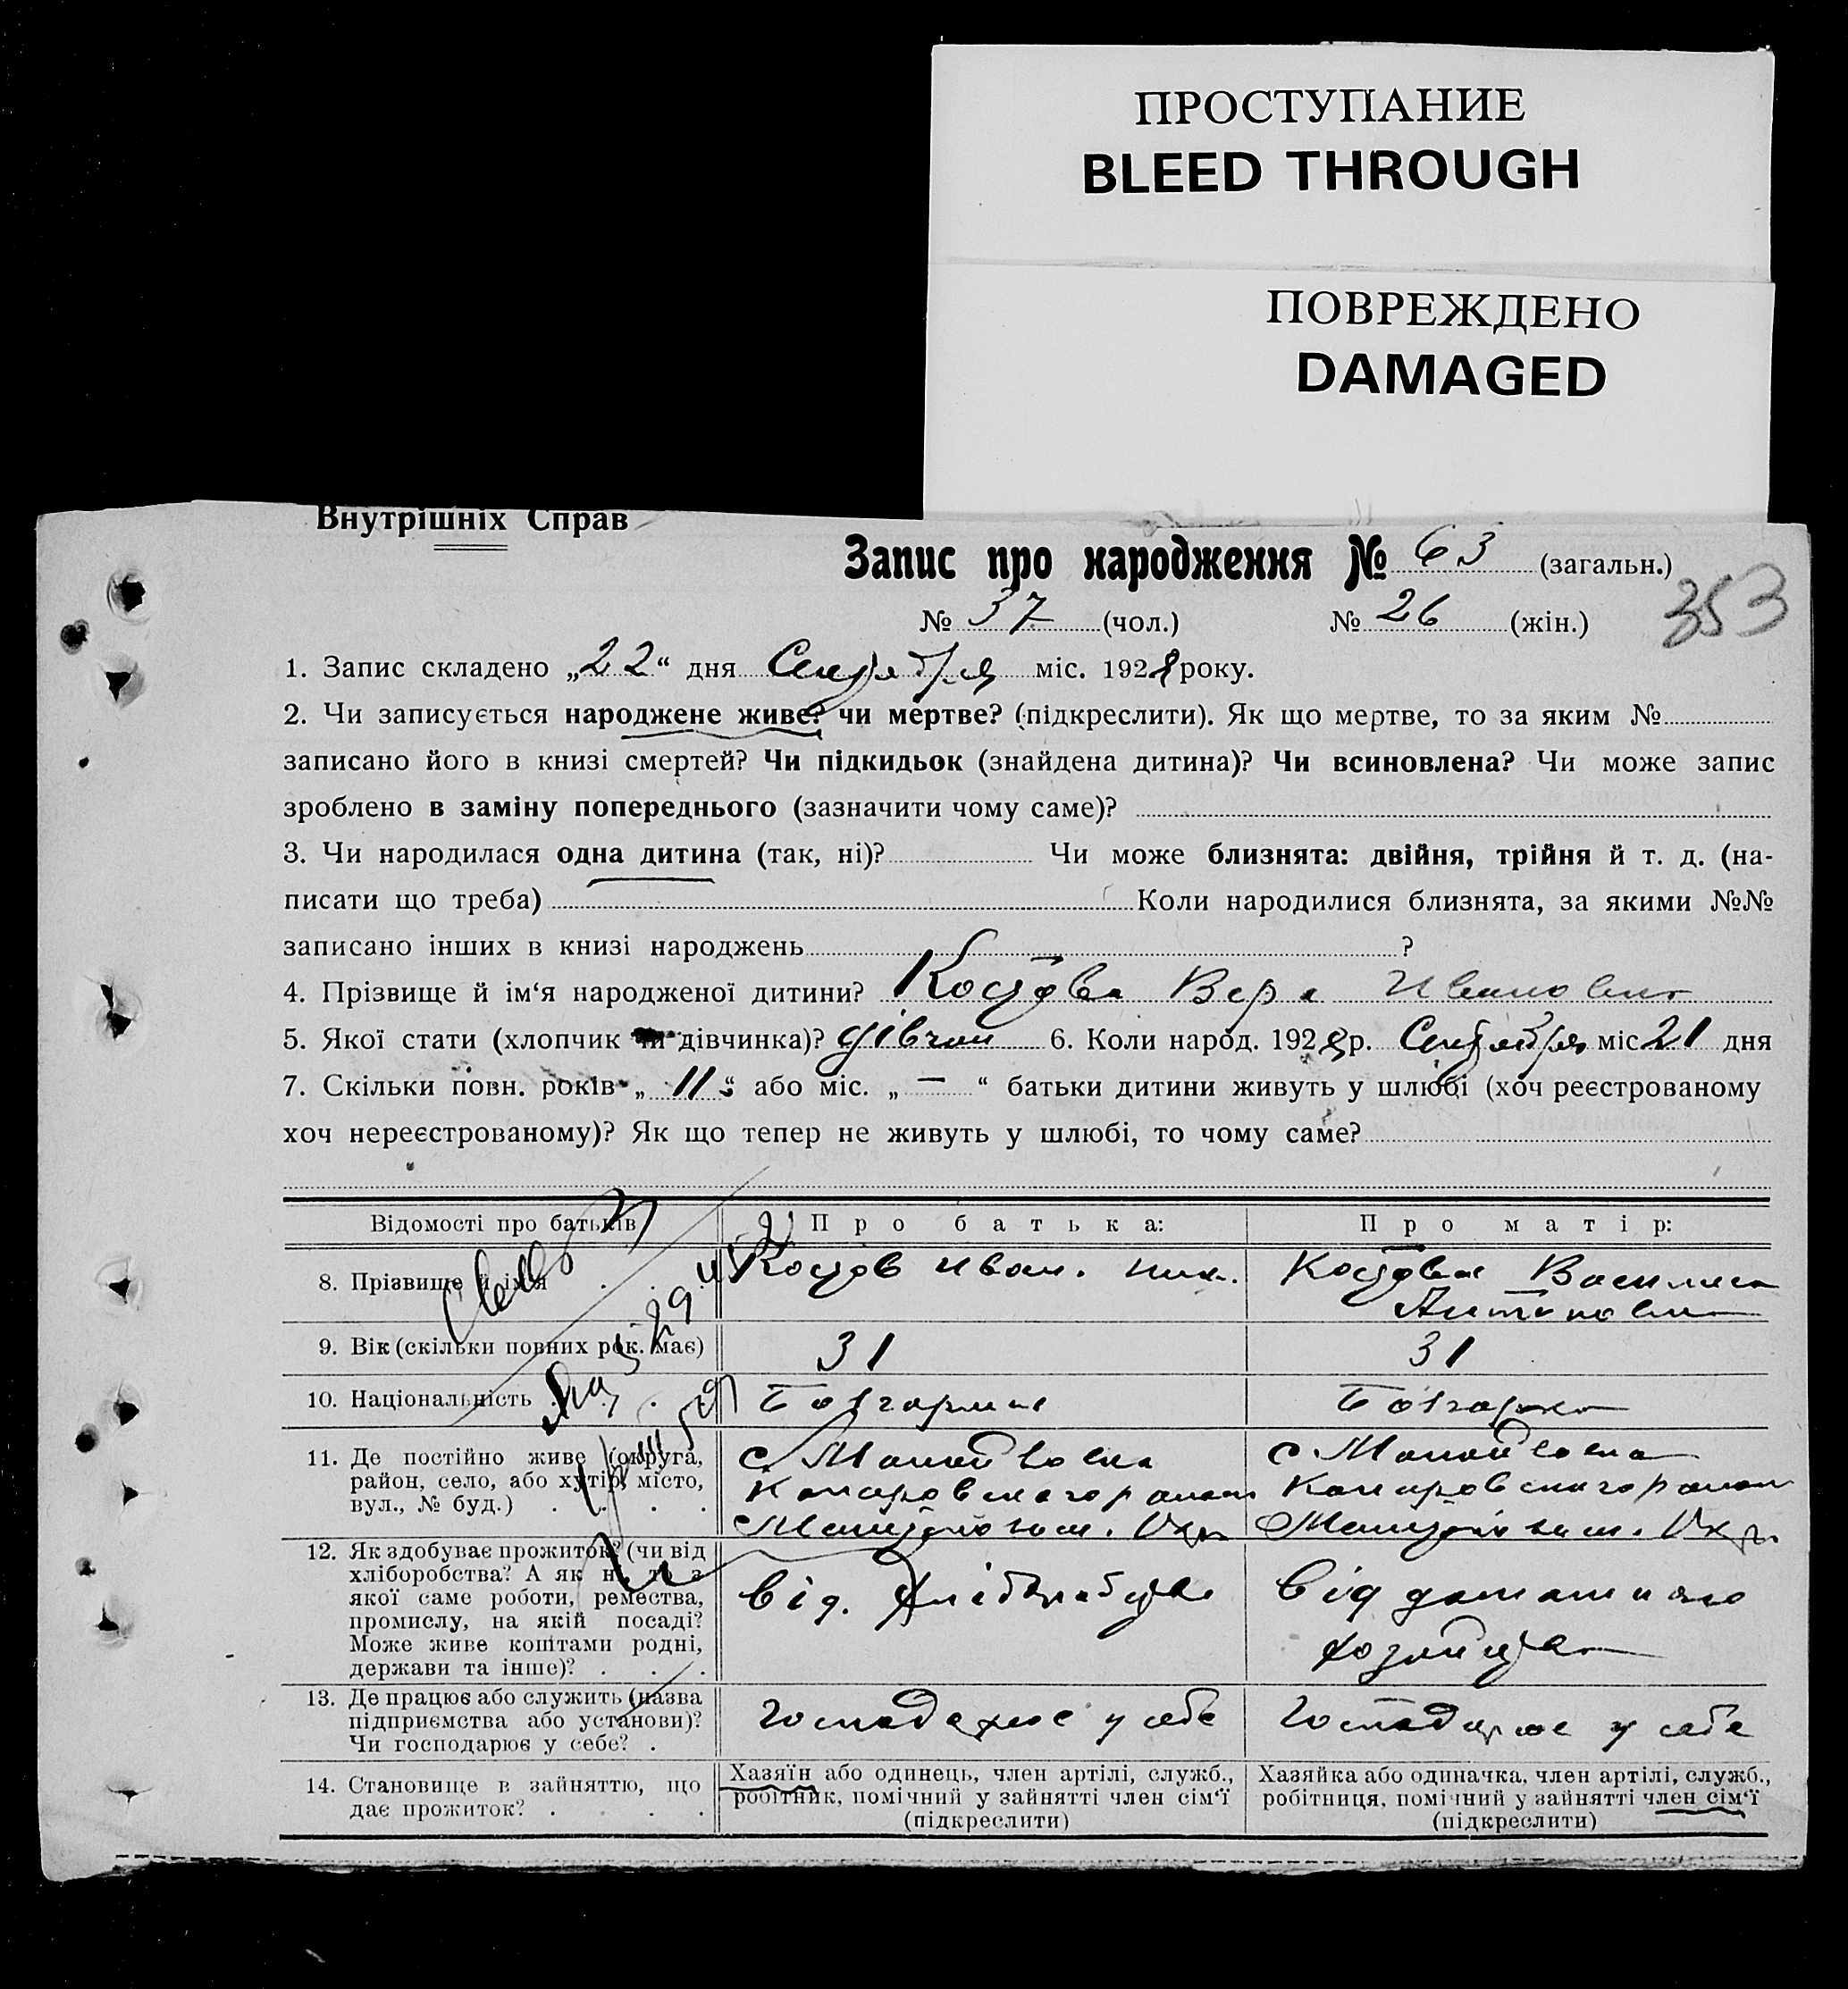 ПРОСТУПАНИЕ
BLEED THROUGH
ПОВРЕЖДЕНО
DAMAGED
Внутрішніх Справ
Запис про народження № 63 (загальн.)
№ 37 (чол.) № 26 (жін.)
353
1. Запис складено „22“ дня Сентября міс. 1928 року.
2. Чи записується народжене живе? чи мертве? (підкреслити). Як що мертве, то за яким №
записано його в книзі смертей? Чи підкидьок (знайдена дитина)? Чи всиновлена? Чи може запис
зроблено в заміну попереднього (зазначити чому саме)?
3. Чи народилася одна дитина (так, ні)? Чи може близнята: двійня, трійня й т. д. (на-
писати що треба) Коли народилися близнята, за якими №№
записано інших в книзі народжень ?
4. Прізвище й ім‘я народженої дитини? Костова Вера Ивановна
5. Якої стати (хлопчик чи дівчинка)? дівчин 6. Коли народ. 1928 р. Сентября міс 21 дня
7. Скільки повн. років „11“ або міс. „—“ батьки дитини живуть у шлюбі (хоч реєстрованому
хоч нереєстрованому)? Як що тепер не живуть у шлюбі, то чому саме?
Відомості про батьків Про батька: Про матір:
8. Прізвище й ім‘я . . Костов Иван. Ник. Костова Василиса
Антоновна
9. Вік (скільки повних рок. має) 31 31
10. Національність . . . Болгарин Болгарка
11. Де постійно живе (округа, с. Мануйловка с Мануйловка
район, село, або хутір, місто,
вул., № буд.) . . . .
12. Як здобуває прожиток? (чи від
хліборобства? А як ні, то з від. хліборобства від домашнього
якої саме роботи, ремества, хозяйства
промислу, на якій посаді?
Може живе коштами родні,
держави та інше)? . . .
13. Де працює або служить (назва господарює у себе господарює у себе
підприємства або установи)?
Чи господарює у себе? .
14. Становище в зайняттю, що Хазяїн або одинець, член артілі, служб., Хазяйка або одиначка, член артілі, служб.,
дає прожиток? . . . . робітник, помічний у зайнятті член сім‘ї робітниця, помічний у зайнятті член сім‘ї
(підкреслити) (підкреслити)